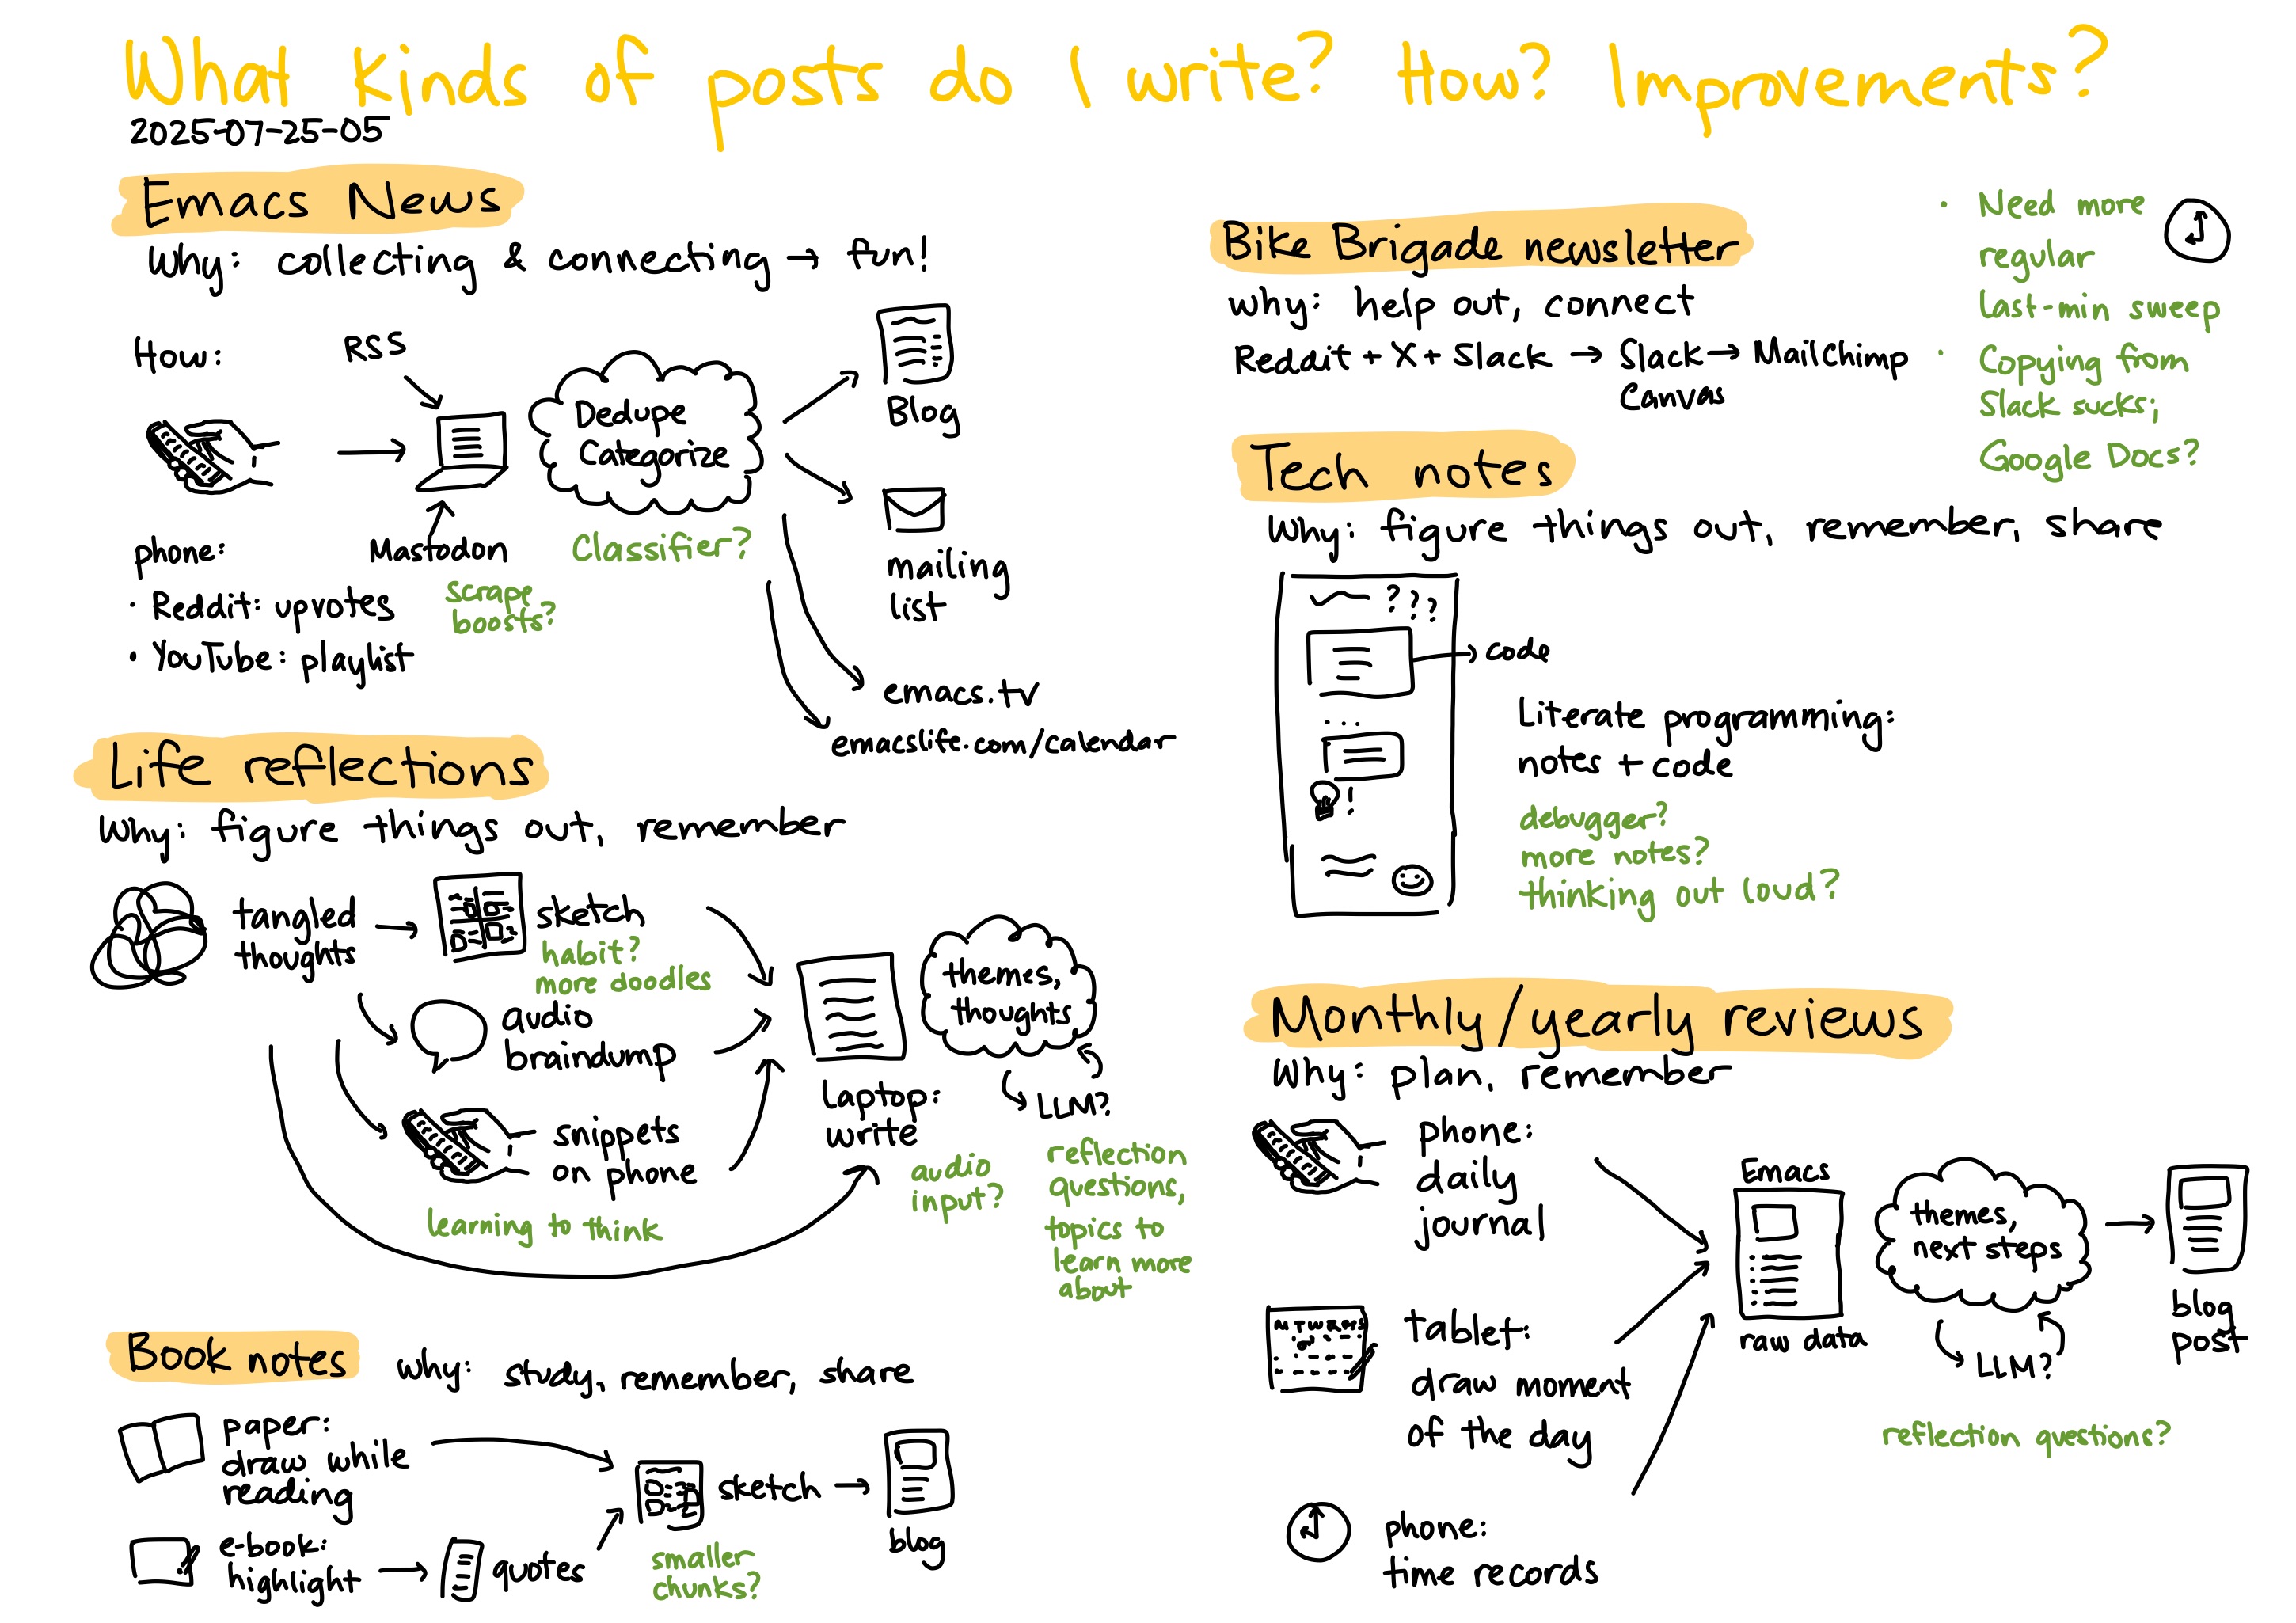 What kinds of posts do I write? How? Improvements?
2025-07-25-05
Emacs News
Why: collecting & connecting → fun!
How:
RSS
phone:
• Reddit: upvotes
• YouTube: playlist
Mastodon
scrape
boosts?
Dedupe
Categorize
Classifier?
Blog
mailing
list
emacs.tv
emacslife.com/calendar
Life reflections
Why: figure things out, remember
tangled
thoughts
sketch
habit?
more doodles
audio
braindump
snippets
on phone
learning to think
laptop:
write
audio
input?
themes,
thoughts
LLM?
reflection
questions,
topics to
learn more
about
Book notes
why: study, remember, share
paper:
draw while
reading
e-book:
highlight
quotes
sketch
smaller
chunks?
blog
Bike Brigade newsletter
why: help out, connect
Reddit + X + Slack → Slack → MailChimp
Canvas
• Need more
regular
last-min sweep
• Copying from
Slack sucks;
Google Docs?
Tech notes
Why: figure things out, remember, share
???
code
...
!
Literate programming:
notes + code
debugger?
more notes?
thinking out loud?
Monthly/yearly reviews
Why: plan, remember
phone:
daily
journal
M T W R F S S
tablet:
draw moment
of the day
phone:
time records
Emacs
raw data
themes,
next steps
LLM?
reflection questions?
blog
post